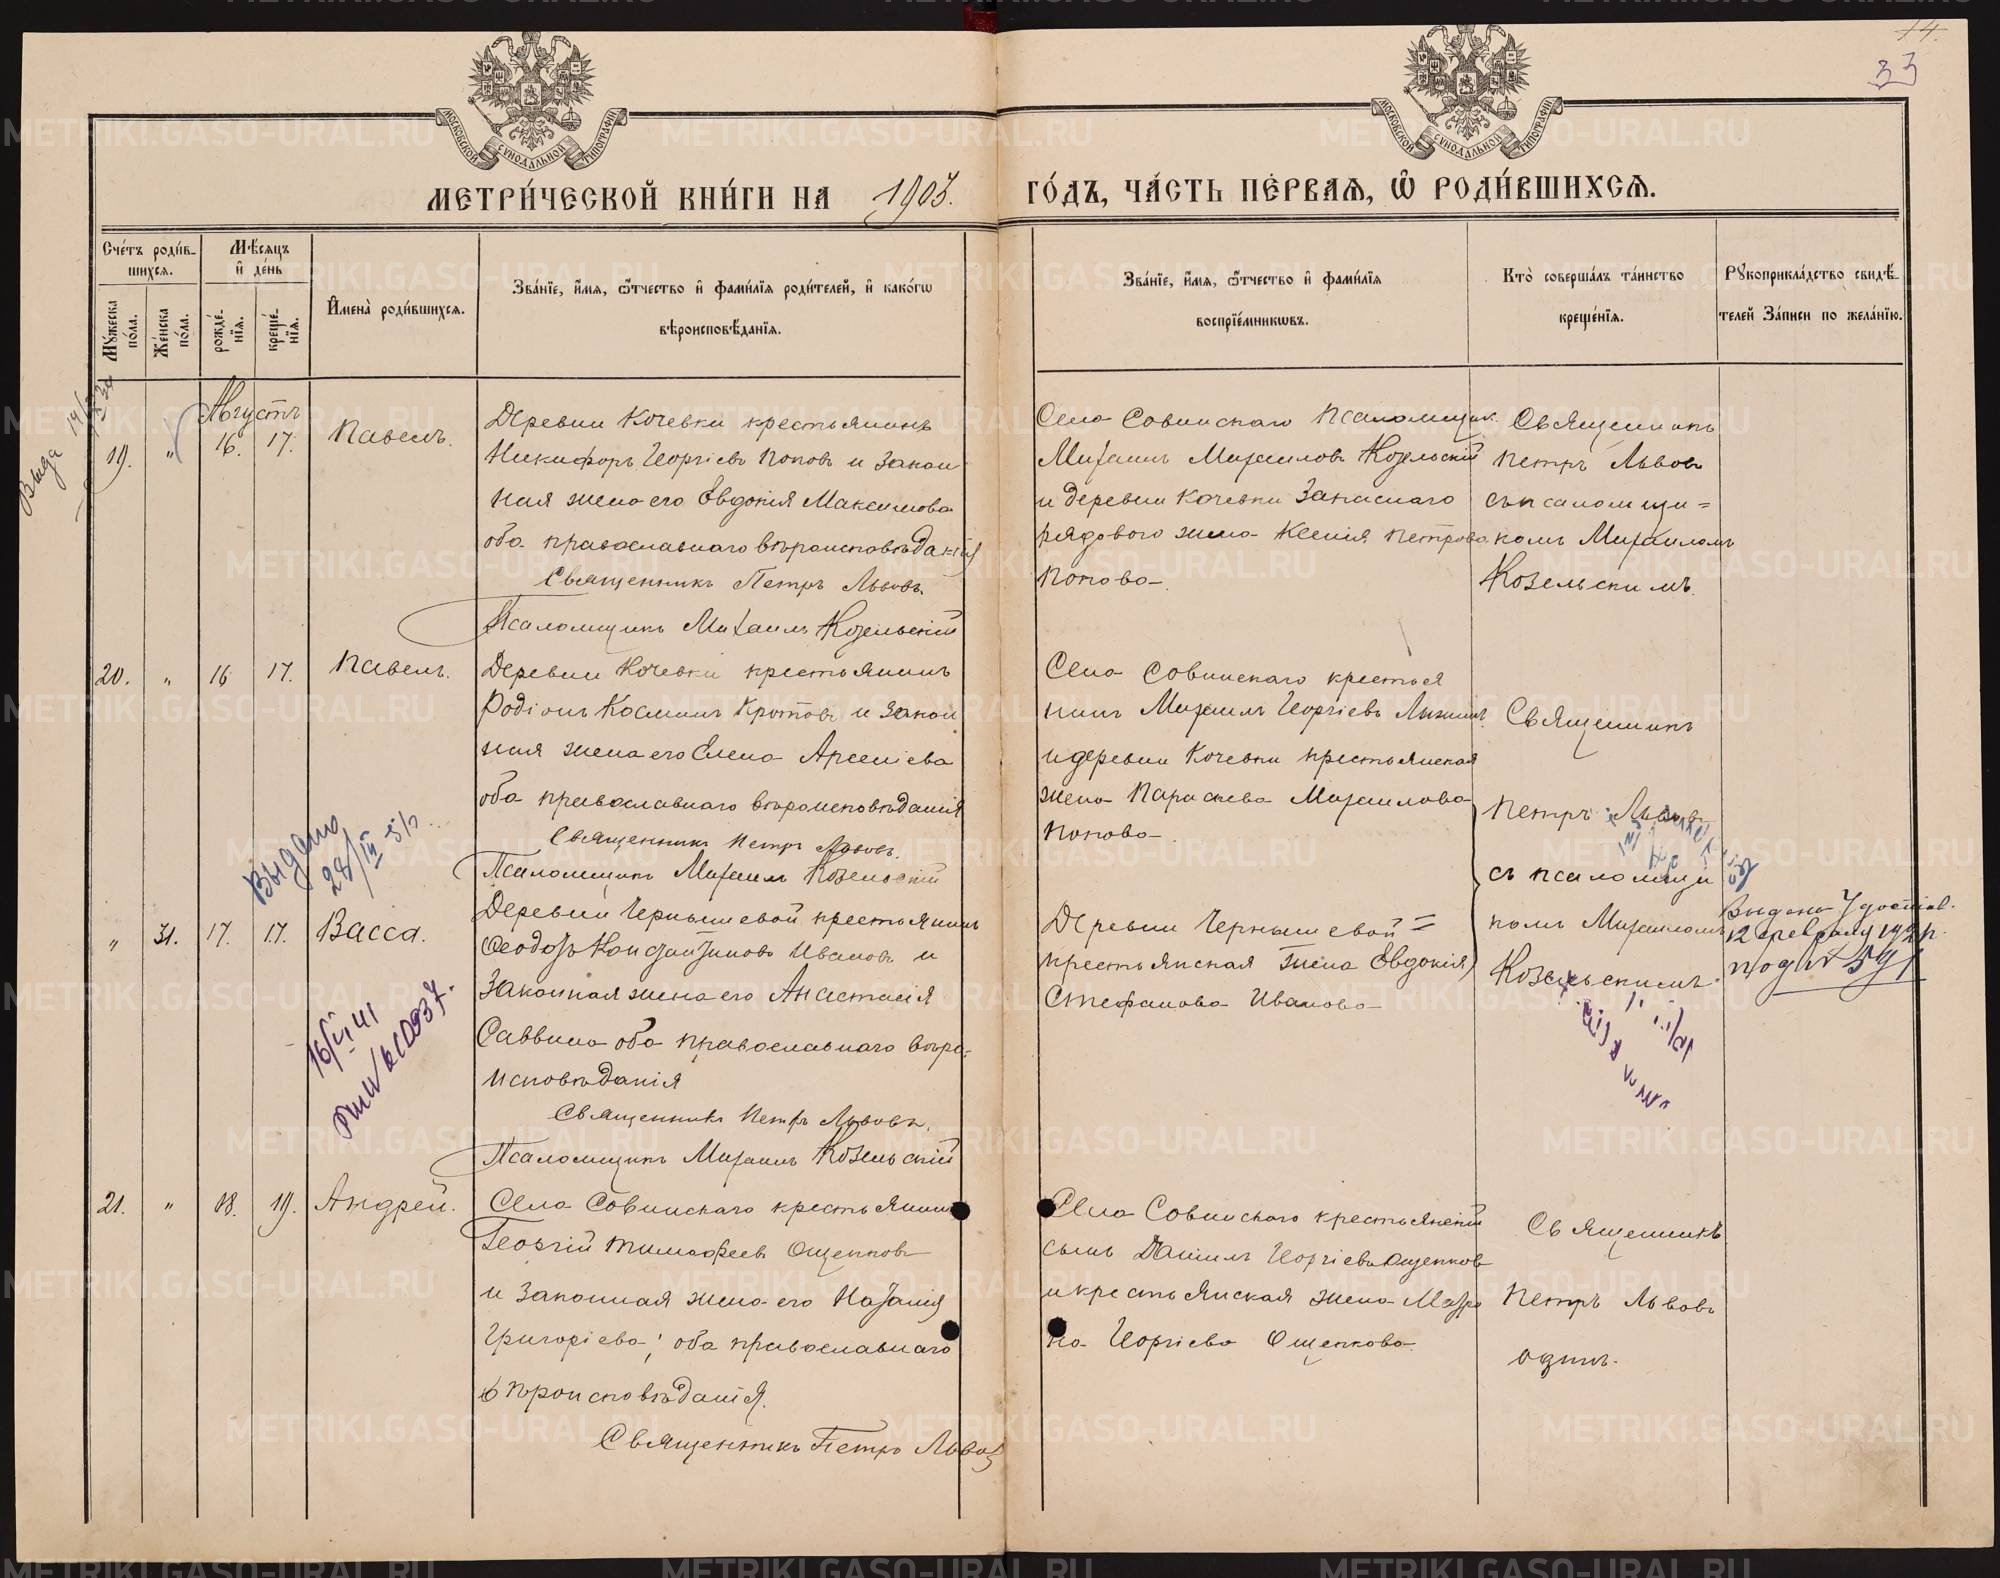 14.
33
МОСКОВСКОЙ СѴНОДАЛЬНОЙ ТИПОГРАФІИ
МОСКОВСКОЙ СѴНОДАЛЬНОЙ ТИПОГРАФІИ
МЕТРИ́ЧЕСКОЙ КНИ́ГИ НА 1903. ГО́ДЪ, ЧА́СТЬ ПЕ́РВАЯ, Ѽ РОДИ́ВШИХСЯ.
Сче́тъ роди́в-
шихся.
Мѣ́сяцъ
и҆ де́нь
Мꙋ́жеска
по́ла.
Же́нска
по́ла.
рожде́-
нїя.
креще́-
нїя.
И҆мена̀ роди́вшихся.
Зва́нїе, и҆́мя, ѻ҆́тчество и҆ фами́лїя роди́телей, и҆ како́гѡ
вѣроисповѣ́данїя.
Зва́нїе, и҆́мя, ѻ҆́тчество и҆ фами́лїя
воспрїе́мникѡвъ.
Кто̀ соверша́лъ та́инство
креще́нїя.
Рꙋкоприкла́дство свидѣ́-
телей За́писи по жела́нїю.
Августъ
19. " 16. 17. Павелъ.
Деревни Кочевки крестьянинъ
Никифоръ Георгіевъ Поповъ и закон
ная жена его Евдокія Максимова
оба православнаго вѣроисповѣданія
Священникъ Петръ Львовъ.
Псаломщикъ Михаилъ Козельскій
Села Совинскаго псаломщик
Михаилъ Михаиловъ Козельскій
и деревни Кочевки запаснаго
рядового жена Ксенія Петрова
Попова
Священникъ
Петръ Львовъ
съ псаломщи=
комъ Михаиломъ
Козельскимъ.
20. " 16 17. Павелъ.
Деревни Кочевки крестьянинъ
Родіонъ Косминъ Кротовъ и закон
ная жена его Елена Арсеніева
оба православнаго вѣроисповѣданія
Священникъ Петръ Львовъ.
Псаломщикъ Михаилъ Козельскій
Села Совинскаго крестья
нинъ Михаилъ Георгіевъ
и деревни Кочевки крестьянская
жена Параскева Михаилова
Попова
Священникъ
Петръ Львовъ
съ псаломщи
комъ Михаиломъ
Козельскимъ.
Выдано
28/III
" 31. 17. 17. Васса.
Деревни Чернышевой крестьянинъ
Ѳеодоръ Константиновъ Ивановъ и
законная жена его Анастасія
Саввина оба православнаго вѣро-
исповѣданія
Священникъ Петръ Львовъ.
Псаломщикъ Михаилъ Козельскій
Деревни Чернышевой=
крестьянская жена Евдокія
Стефанова Иванова
Выдано
12 февраля
21. " 18. 19. Андрей.
Села Совинскаго крестьянинъ
Георгій Тимофеевъ Ощепковъ
и законная жена его Наталія
Григоріева; оба православнаго
вѣроисповѣданія.
Священникъ Петръ Львовъ
Села Совинскаго крестьянскій
сынъ Даніилъ Георгіевъ Ощепковъ
и крестьянская жена Матро
на Георгіева Ощепкова
Священникъ
Петръ Львовъ
одинъ.
METRIKI.GASO-URAL.RU